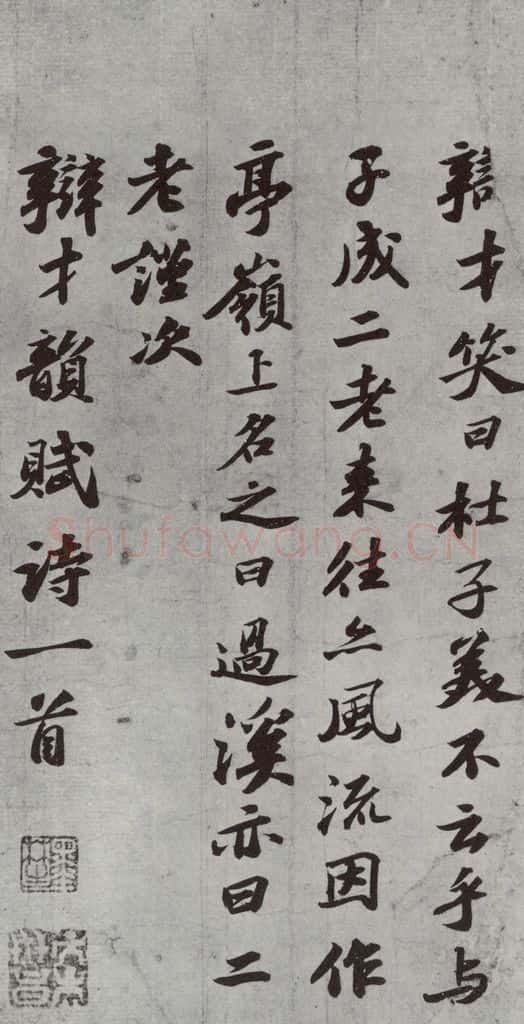 辯才笑曰杜子美不云乎与
子成二老来往亦風流因作
亭嶺上名之曰過溪亦曰二
老謹次
辯才韻賦詩一首
Shufawang.CN